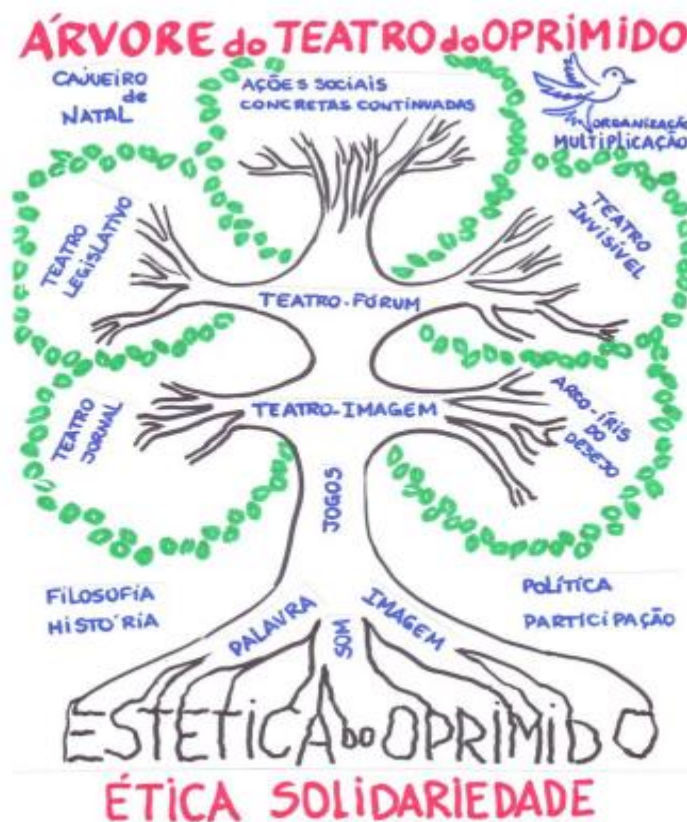 ÁRVORE do TEATRO do OPRIMIDO
CAJUEIRO
de
NATAL
AÇÕES SOCIAIS
CONCRETAS CONTINUADAS
ORGANIZAÇÃO
MULTIPLICAÇÃO
TEATRO
LEGISLATIVO
TEATRO
INVISÍVEL
TEATRO-FÓRUM
TEATRO
JORNAL
TEATRO-IMAGEM
ARCO-ÍRIS
DO
DESEJO
JOGOS
FILOSOFIA
HISTÓRIA
POLÍTICA
PARTICIPAÇÃO
PALAVRA
SOM
IMAGEM
ESTETICA do OPRIMIDO
ÉTICA SOLIDARIEDADE